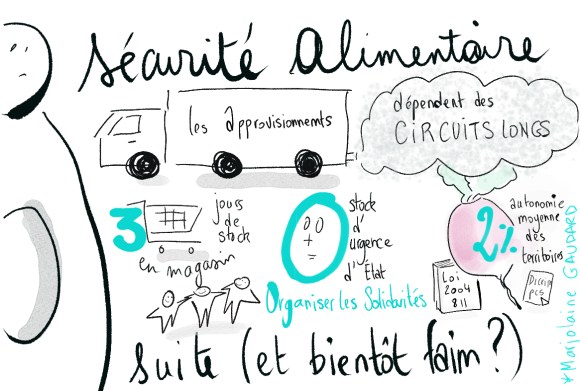 Sécurité Alimentaire
les approvisionnemts
dépendent des
CIRCUITS LONGS
3
jours
de
stock
en magasin
0
stock
d'
urgence
d'État
2%
autonomie
moyenne
des
territoires
Loi
2004
811
Organiser les Solidarités
suite (et bientôt faim?)
*Marjolaine GAUDARD